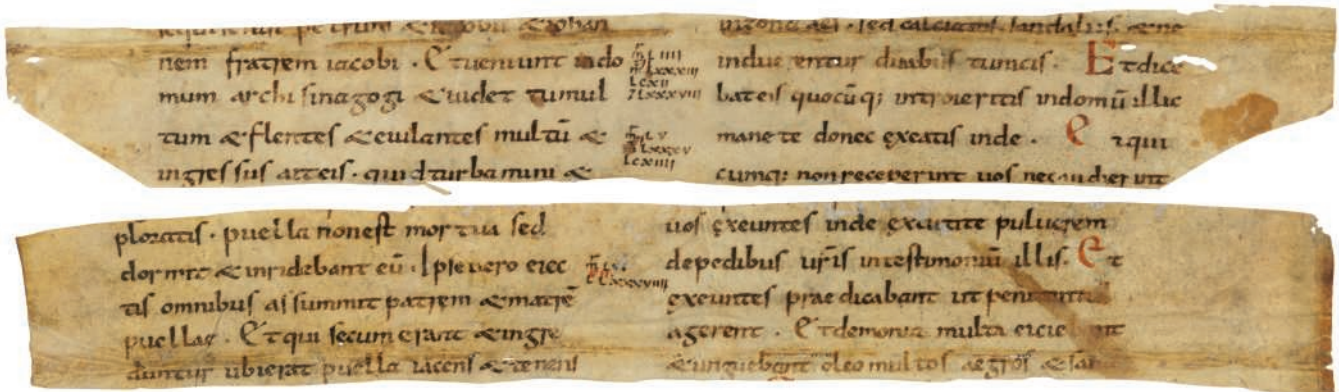 sequi nisi petrum & iacobum & iohan
nem fratrem iacobi · Et ueniunt indo
mum archisinagogi & uidet tumul
tum & flentes & eiulantes multū &
ingressus ait eis · quid turbamini &
ploratis · puella non est mortua sed
dormit & inridebant eū · Ipse vero eiec
tis omnibus assummit patrem & matrē
puellae · Et qui secum erant & ingre
diuntur ubi erat puella iacens & tenens
in zona aes · sed calciatos sandaliis · & ne
induerentur duabus tunicis · Et dice
bat eis quocūq; introieritis indomū illic
manete donec exeatis inde · Et qui
cumq; non receperint uos nec audierint
uos exeuntes inde excutite puluerem
depedibus ur̄is in testimoniū illis · Et
exeuntes praedicabant ut penitentiā
agerent · Et demonia multa eiciebant
& unguebant oleo multos aegros & san